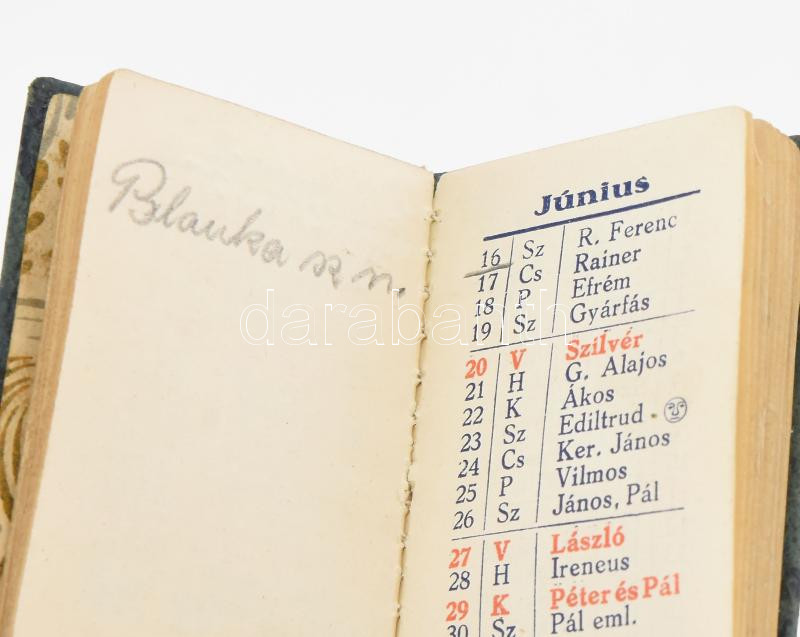 Blanka sz n.
Június
16 Sz R. Ferenc
17 Cs Rainer
18 P Efrém
19 Sz Gyárfás
20 V Szilvér
21 H G. Alajos
22 K Ákos
23 Sz Ediltrud
24 Cs Ker. János
25 P Vilmos
26 Sz János, Pál
27 V László
28 H Ireneus
29 K Péter és Pál
30 Sz Pál eml.
darabanth